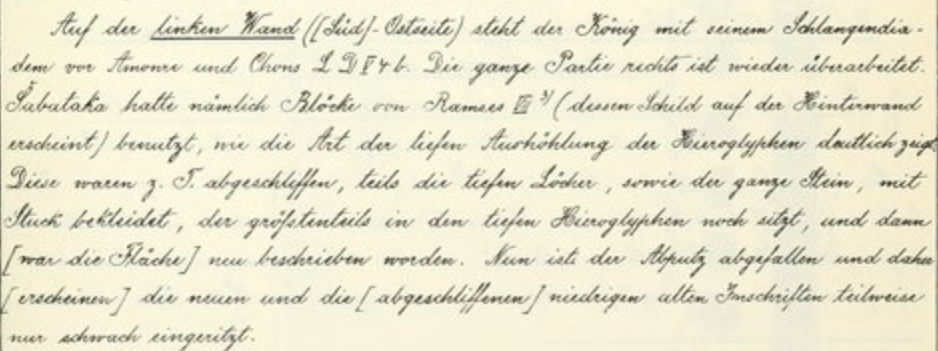 Auf der linken Wand ([Süd]-Ostseite) steht der König mit seinem Schlangendia-
dem vor Amonre und Chons L D V 4 b. Die ganze Partie rechts ist wieder überarbeitet.
Šabataka hatte nämlich Blöcke von Ramses III ³⁾ (dessen Schild auf der Hinterwand
erscheint) benutzt, wie die Art der tiefen Aushöhlung der Hieroglyphen deutlich zeigt.
Diese waren z. T. abgeschliffen, teils die tiefen Löcher, sowie der ganze Stein, mit
Stuck bekleidet, der größtenteils in den tiefen Hieroglyphen noch sitzt, und dann
[war die Fläche] neu beschrieben worden. Nun ist der Abputz abgefallen und daher
[erscheinen] die neuen und die [abgeschliffenen] niedrigen alten Inschriften teilweise
nur schwach eingeritzt.